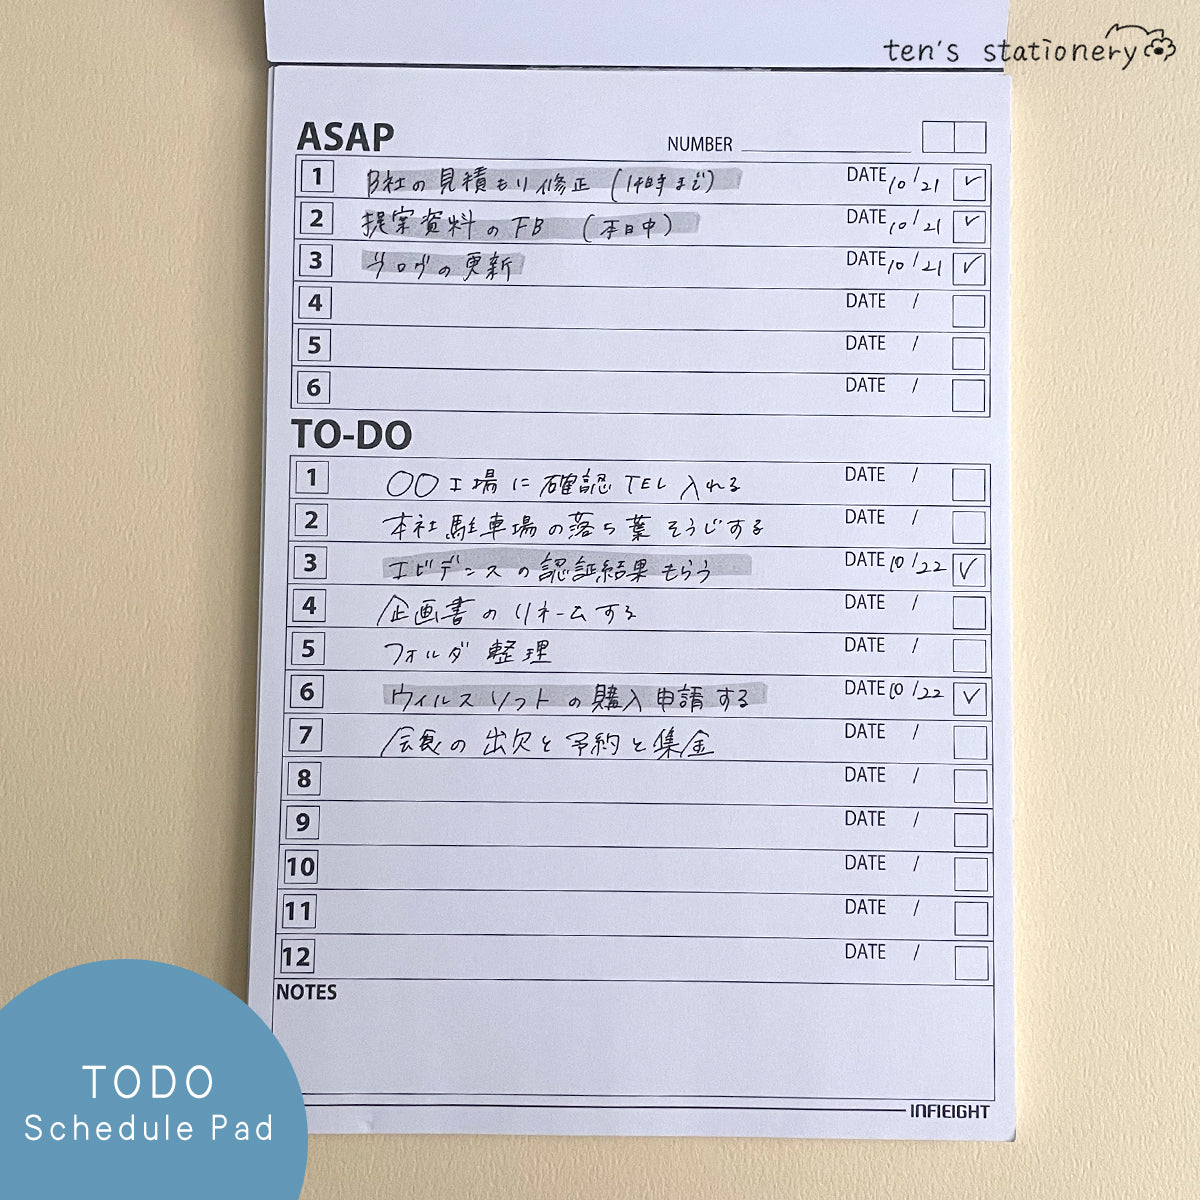 ten's stationery
ASAP
NUMBER
1 B社の見積もり修正 (14時まで) DATE 10/21 ✓
2 提案資料のFB (本日中) DATE 10/21 ✓
3 ブログの更新 DATE 10/21 ✓
4 DATE /
5 DATE /
6 DATE /
TO-DO
1 〇〇工場に確認TEL入れる DATE /
2 本社駐車場の落ち葉そうじする DATE /
3 エビデンスの認証結果もらう DATE 10/22 ✓
4 企画書のリネームする DATE /
5 フォルダ整理 DATE /
6 ウィルスソフトの購入申請する DATE 10/22 ✓
7 会食の出欠と予約と集金 DATE /
8 DATE /
9 DATE /
10 DATE /
11 DATE /
12 DATE /
NOTES
INFIEIGHT
TODO
Schedule Pad